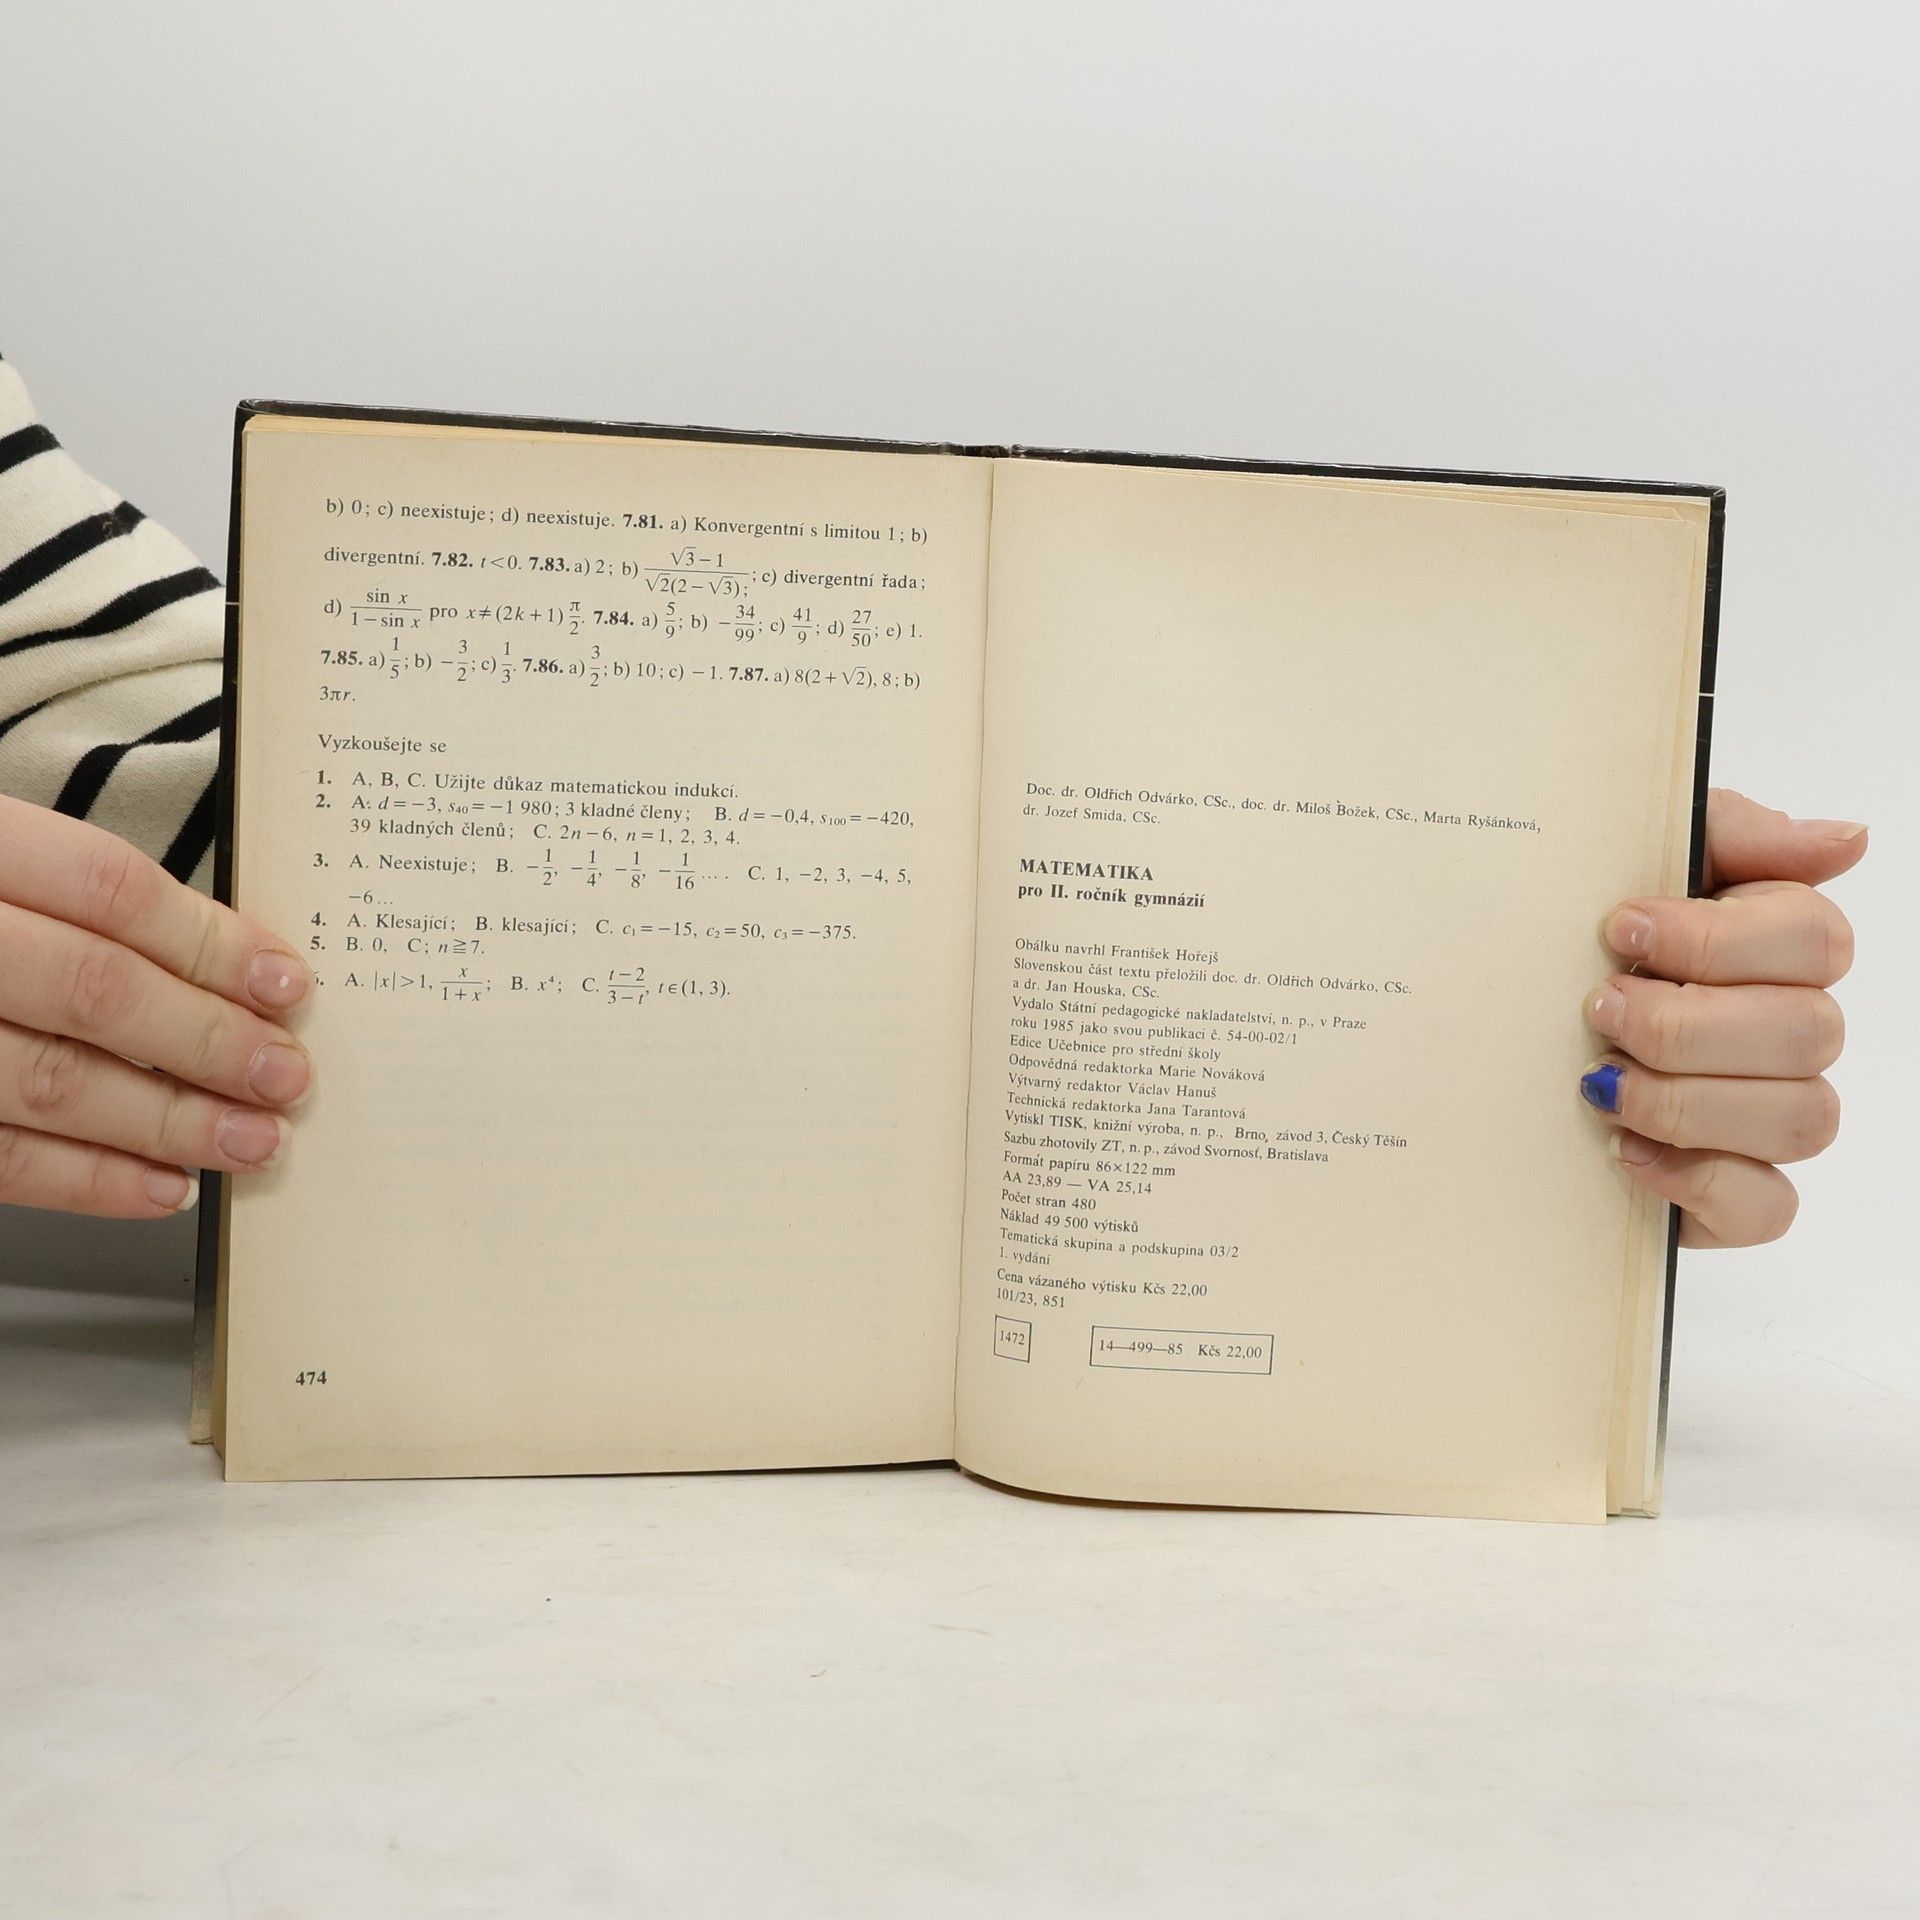 b) 0; c) neexistuje; d) neexistuje. 7.81. a) Konvergentní s limitou 1; b)
divergentní. 7.82. t<0. 7.83. a) 2; b) (√3−1)/(√2(2−√3)); c) divergentní řada;
d) sin x/(1−sin x) pro x≠(2k+1) π/2. 7.84. a) 5/9; b) −34/99; c) 41/9; d) 27/50; e) 1.
7.85. a) 1/5; b) −3/2; c) 1/3. 7.86. a) 3/2; b) 10; c) −1. 7.87. a) 8(2+√2), 8; b)
3πr.
Vyzkoušejte se
1. A, B, C. Užijte důkaz matematickou indukcí.
2. A. d=−3, s₄₀=−1 980; 3 kladné členy; B. d=−0,4, s₁₀₀=−420,
39 kladných členů; C. 2n−6, n=1, 2, 3, 4.
3. A. Neexistuje; B. −1/2, −1/4, −1/8, −1/16 .... C. 1, −2, 3, −4, 5,
−6...
4. A. Klesající; B. klesající; C. c₁=−15, c₂=50, c₃=−375.
5. B. 0, C; n≧7.
A. |x|>1, x/(1+x); B. x⁴; C. (t−2)/(3−t), t∈(1, 3).
474
Doc. dr. Oldřich Odvárko, CSc., doc. dr. Miloš Božek, CSc., Marta Ryšánková,
dr. Jozef Smida, CSc.
MATEMATIKA
pro II. ročník gymnázií
Obálku navrhl František Hořejš
Slovenskou část textu přeložili doc. dr. Oldřich Odvárko, CSc.
a dr. Jan Houska, CSc.
Vydalo Státní pedagogické nakladatelství, n. p., v Praze
roku 1985 jako svou publikaci č. 54-00-02/1
Edice Učebnice pro střední školy
Odpovědná redaktorka Marie Nováková
Výtvarný redaktor Václav Hanuš
Technická redaktorka Jana Tarantová
Vytiskl TISK, knižní výroba, n. p., Brno, závod 3, Český Těšín
Sazbu zhotovily ZT, n. p., závod Svornosť, Bratislava
Formát papíru 86×122 mm
AA 23,89 — VA 25,14
Počet stran 480
Náklad 49 500 výtisků
Tematická skupina a podskupina 03/2
1. vydání
Cena vázaného výtisku Kčs 22,00
101/23, 851
1472 14—499—85 Kčs 22,00